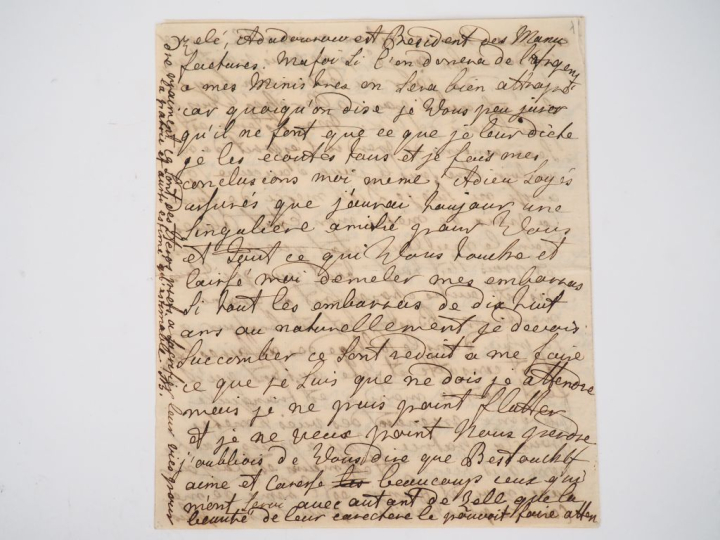 zelé, Adadourow est President des Manu
factures. Mafoi si l'on donera de l'argent
a mes Ministres on sera bien attrapé
car quoiqu'on dise je Vous peu jurer
qu'il ne font que ce que je leur dicte
je les ecoutes tous et je fais mes
conclusions moi meme, Adieu soyés
assurés que j'aurai toujour une
singulière amitié pour Vous
et tout ce qui Vous touche et
laissé moi demeler mes embarras
si tout les embarras de dix huit
ans ou naturellement je devois
succomber ce sont reduit a me faire
ce que je suis que ne dois je attendre
mais je ne puis point flatter
et je ne veux point Nous perdre
j'oubliois de Vous dire que Bestouchef
aime et caresse beaucoup ceux qui
m'ont servi avec autant de zelle que la
beauté de leur carectere le pouvoit faire atten
dre vraiment ce sont des Heros pret a sacrifier leur vies pour
la patrie et aussi estimé qu'estimable